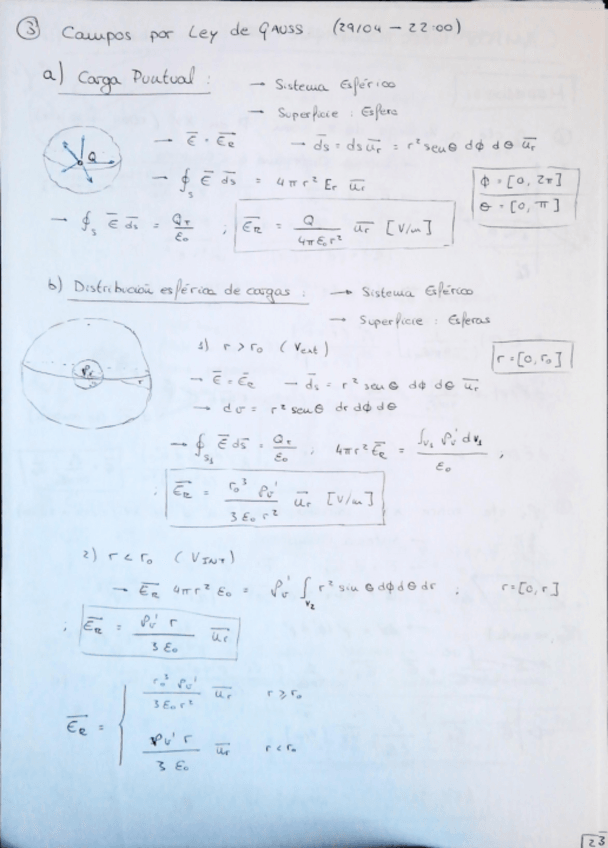 ③ Campos por Ley de GAUSS (29/04 - 22:00)
a) Carga Puntual : → Sistema Esférico
→ Superficie : Esfera
Q
→ E̅ = E̅_R → d̅s = ds u̅r = r² senθ dϕ dθ u̅r
→ ∮_S E̅ d̅s = 4πr² Er u̅r
ϕ = [0, 2π]
θ = [0, π]
→ ∮_S E̅ d̅s = Q_T / ε₀ ; E̅_R = Q / 4πε₀r² u̅r [V/m]
b) Distribución esférica de cargas : → Sistema Esférico
→ Superficie : Esferas
1) r > r₀ (Vext)
r = [0, r₀]
→ E̅ = E̅_R → d̅s = r² senθ dϕ dθ u̅r
→ dv = r² senθ dr dϕ dθ
→ ∮_S₁ E̅ d̅s = Q_T / ε₀ ; 4πr² E̅_R = ∫_V₁ ρv' dv₁ / ε₀ ,
; E̅_R = r₀³ ρv' / 3ε₀r² u̅r [V/m]
2) r < r₀ (VINT)
→ E̅_R 4πr² ε₀ = ρv' ∫_V₂ r² sin θ dϕ dθ dr ; r = [0, r]
; E̅_R = ρv' r / 3ε₀ u̅r
E̅_R = { r₀³ ρv' / 3ε₀r² u̅r r ⩾ r₀
ρv' r / 3ε₀ u̅r r < r₀
23